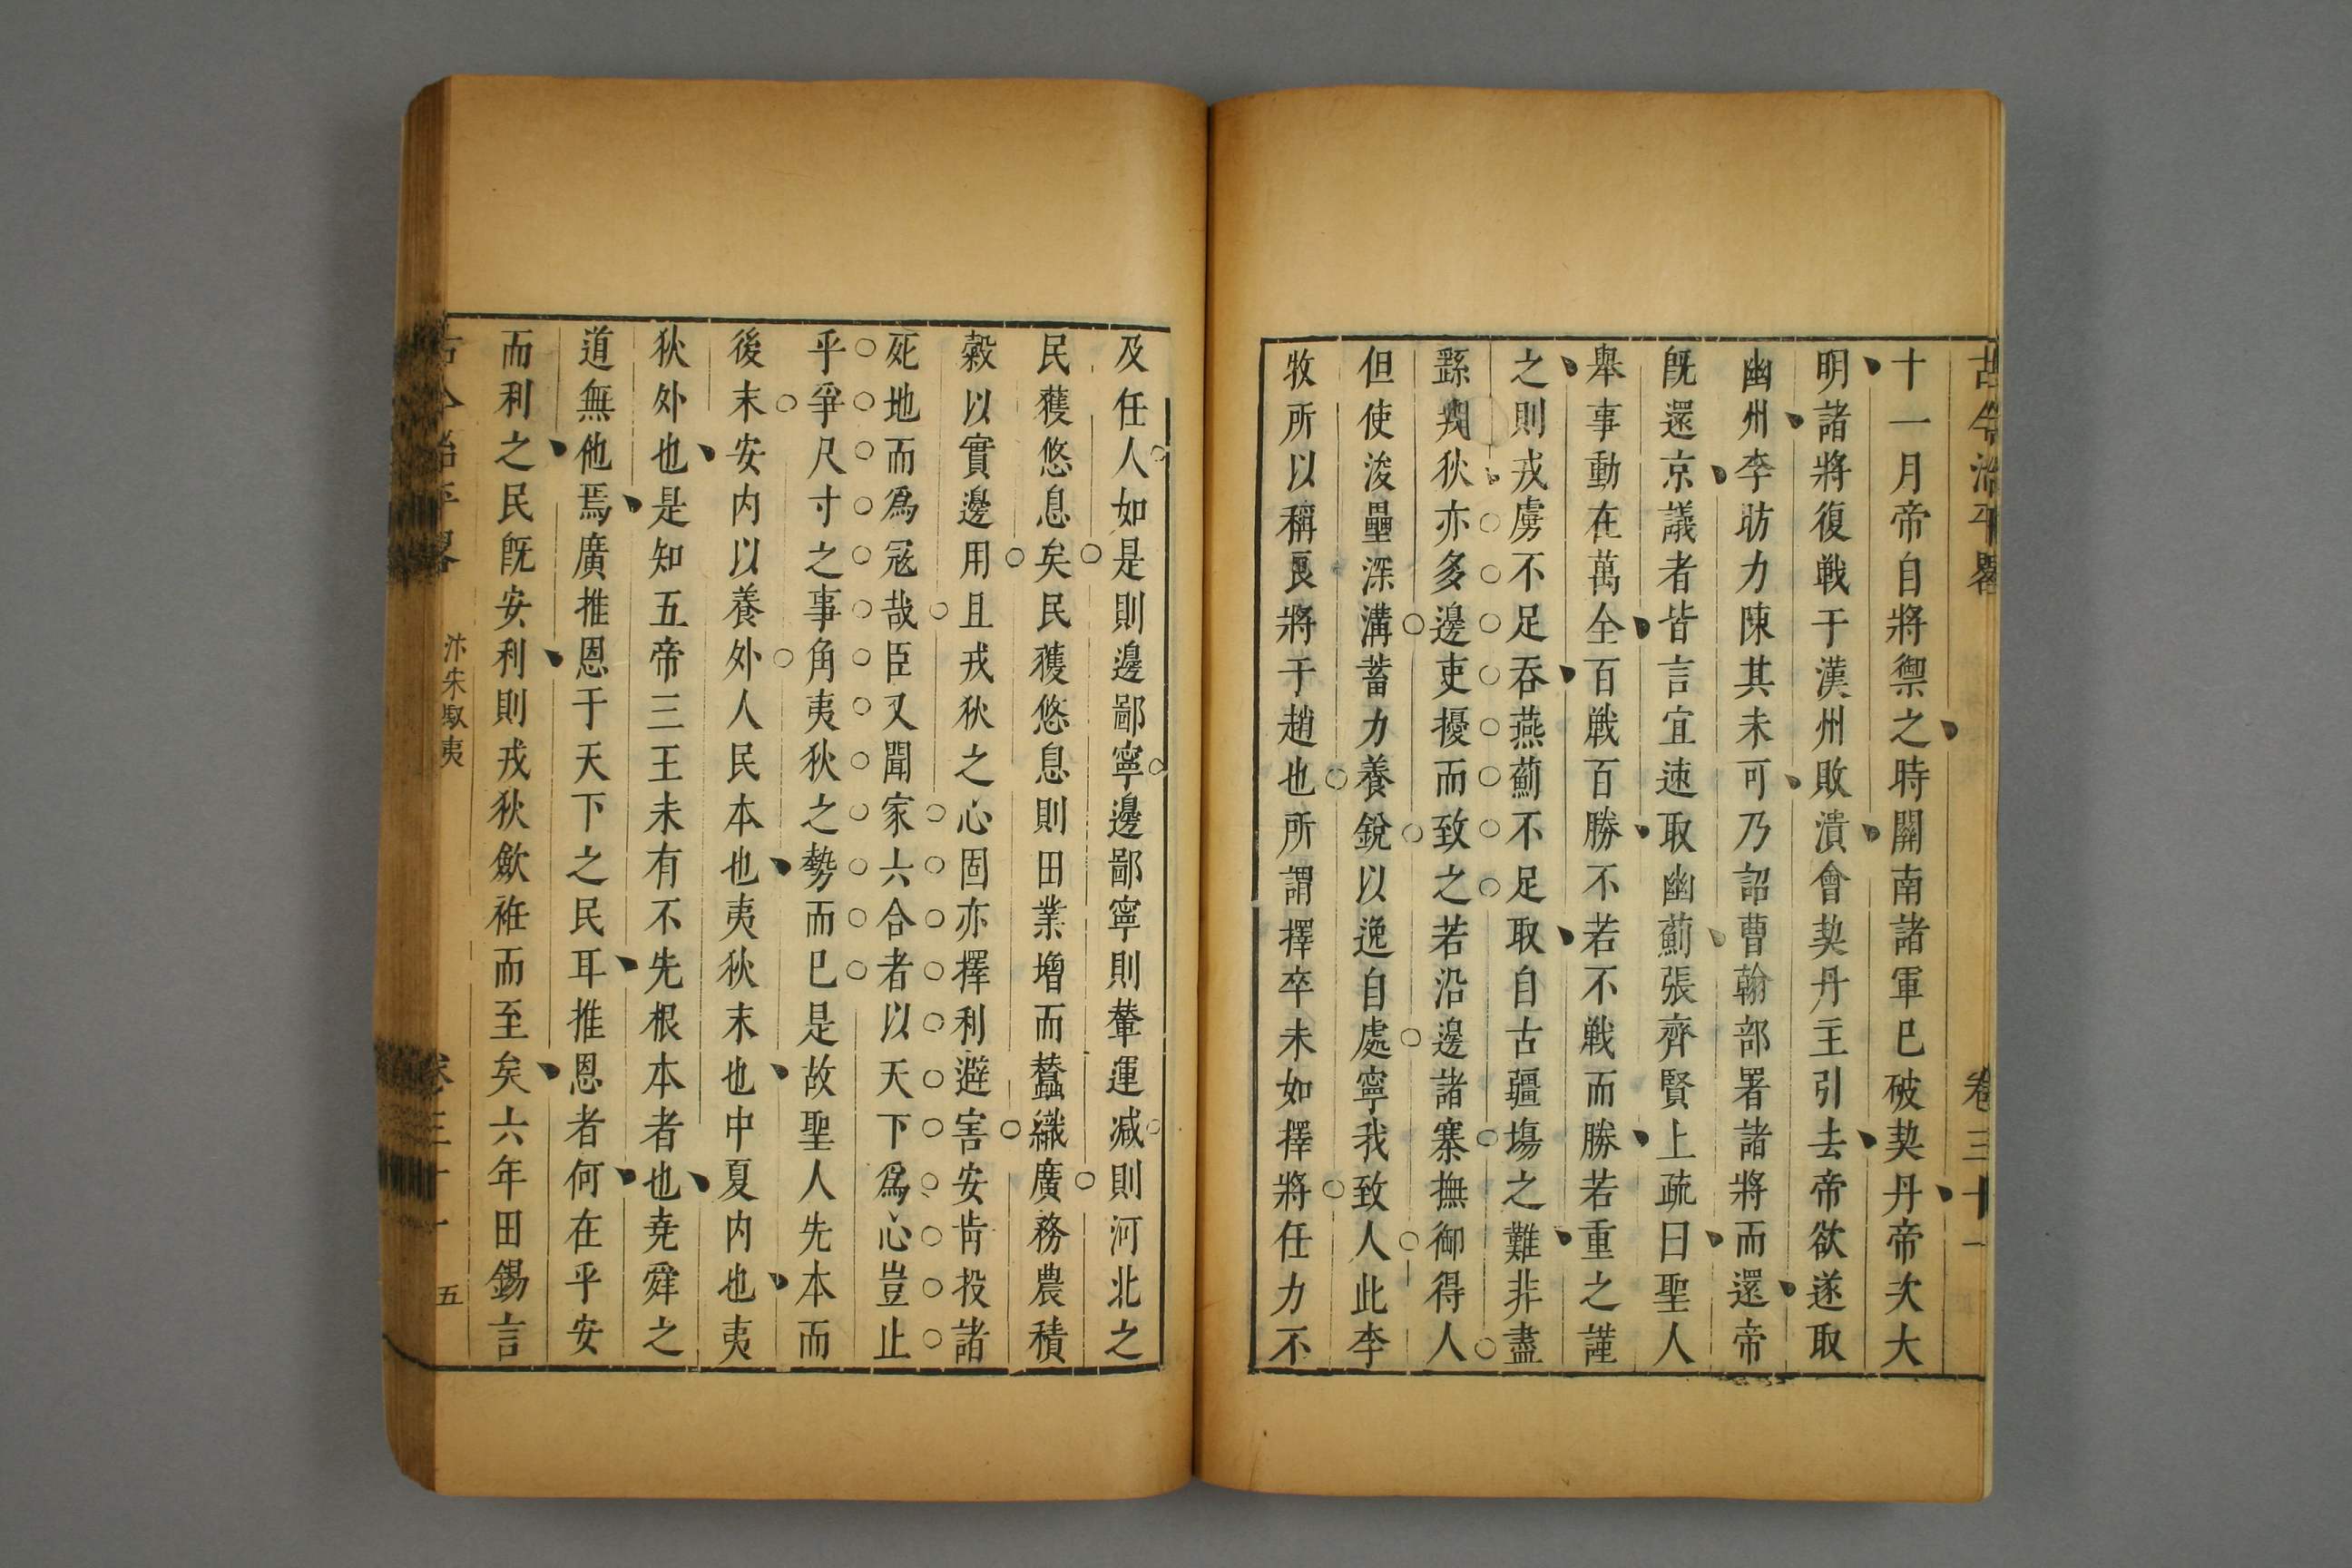 古今治平畧 卷三十一
十一月帝自將禦之時關南諸軍已破契丹帝次大
明諸將復戦于漢州敗潰會契丹主引去帝欲遂取
幽州李昉力陳其未可乃詔曹翰部署諸將而還帝
旣還京議者皆言宜速取幽薊張齊賢上疏曰聖人
舉事動在萬全百戦百勝不若不戦而勝若重之謹
之則戎虜不足吞燕薊不足取自古疆場之難非盡
繇夷狄亦多邊吏擾而致之若沿邊諸寨撫御得人
但使浚壘深溝蓄力養銳以逸自處寧我致人此李
牧所以稱良將于趙也所謂擇卒未如擇將任力不
及任人如是則邊鄙寧邊鄙寧則輦運减則河北之
民獲悠息矣民獲悠息則田業增而蠶織廣務農積
糓以實邊用且戎狄之心固亦擇利避害安肯投諸
死地而爲冦哉臣又聞家六合者以天下爲心豈止
乎爭尺寸之事角夷狄之勢而已是故聖人先本而
後末安内以養外人民本也夷狄末也中夏内也夷
狄外也是知五帝三王未有不先根本者也尭舜之
道無他焉廣推恩于天下之民耳推恩者何在乎安
而利之民旣安利則戎狄歛袵而至矣六年田錫言
古今治平畧 汴宋馭夷 卷三十一 五